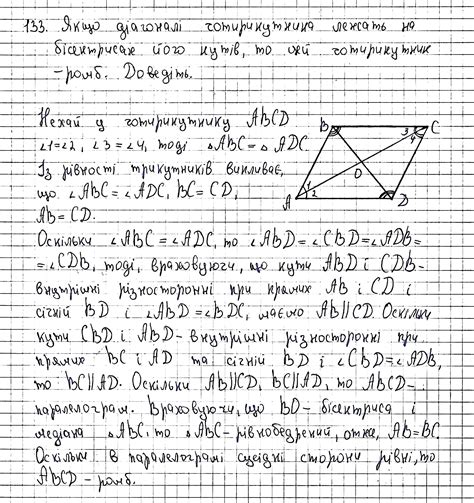 133. Якщо діагоналі чотирикутника лежать на
бісектрисах його кутів, то цей чотирикутник
-ромб. Доведіть.
Нехай у чотирикутнику ABCD
∠1=∠2, ∠3=∠4, тоді △ABC=△ADC.
Із рівності трикутників випливає,
що ∠ABC=∠ADC, BC=CD,
AB=CD.
B
3
C
4
O
1
2
A
D
Оскільки ∠ABC=∠ADC, то ∠ABD=∠CBD=∠ADB=
=∠CDB, тоді, враховуючи, що кути ABD і CDB-
внутрішні різносторонні при прямих AB і CD і
січній BD і ∠ABD=∠BDC, маємо AB||CD. Оскільки
кути CBD і ABD-внутрішні різносторонні при
прямих BC і AD та січній BD і ∠CBD=∠ADB,
то BC||AD. Оскільки AB||CD, BC||AD, то ABCD-
паралелограм. Враховуючи, що BO-бісектриса і
медіана △ABC, то △ABC-рівнобедрений, отже, AB=BC.
Оскільки в паралелограмі сусідні сторони рівні, то
ABCD-ромб.